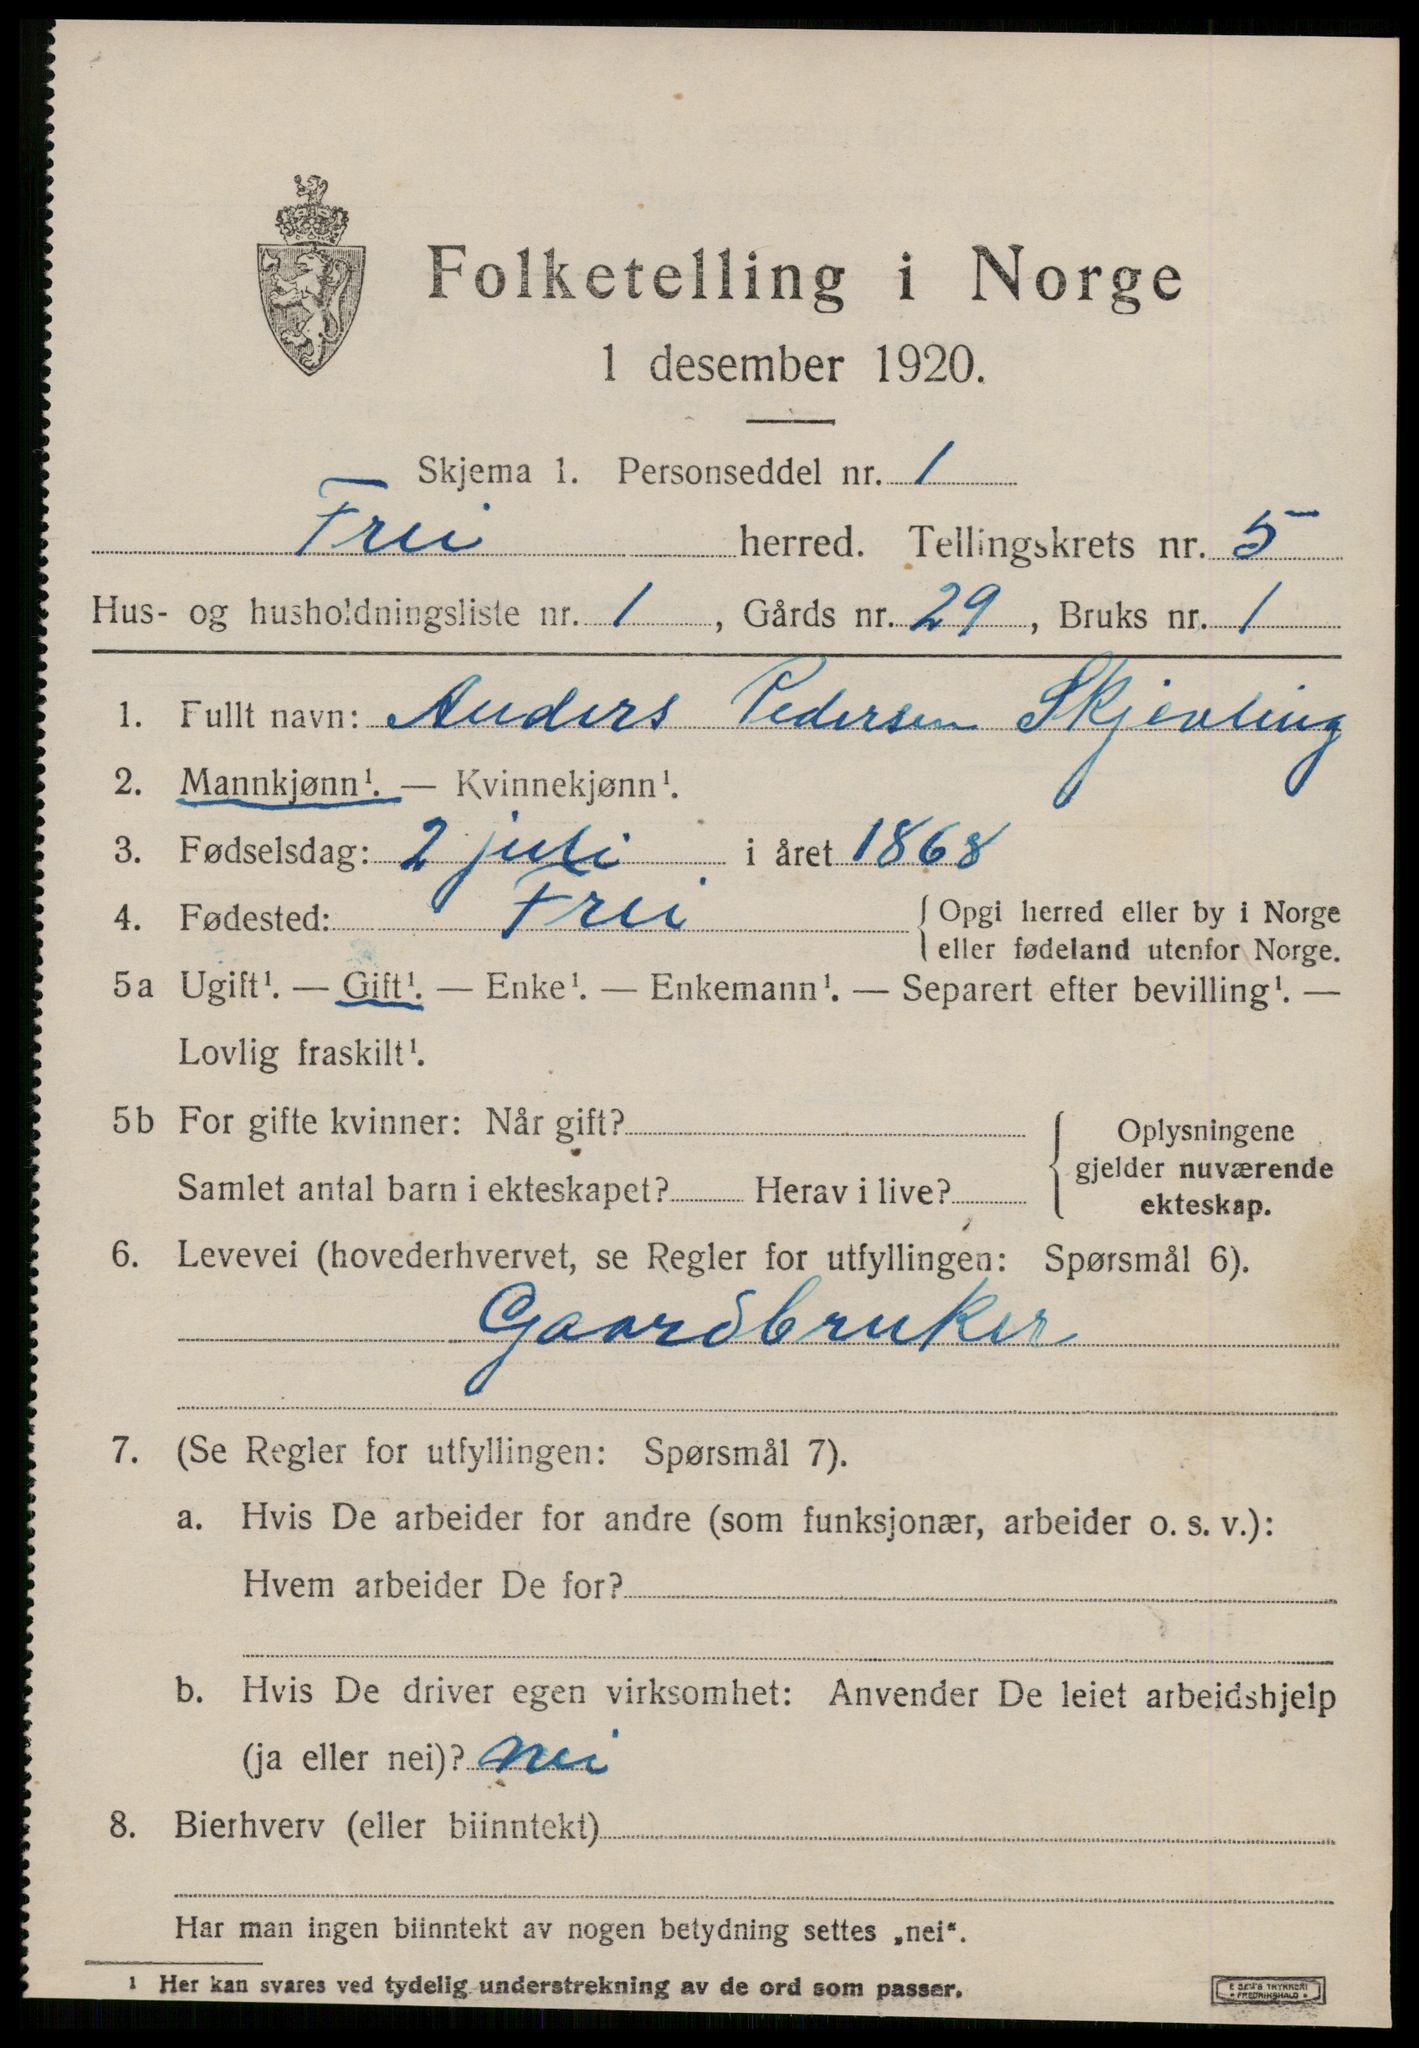 Folketelling i Norge
1 desember 1920.
Skjema 1. Personseddel nr. 1
Frei herred. Tellingskrets nr. 5
Hus- og husholdningsliste nr. 1, Gårds nr. 29, Bruks nr. 1
1. Fullt navn: Anders Pedersen Skjevling
2. Mannkjønn¹. — Kvinnekjønn¹.
3. Fødselsdag: 2 juli i året 1868
4. Fødested: Frei { Opgi herred eller by i Norge
eller fødeland utenfor Norge.
5a Ugift¹. — Gift¹. — Enke¹. — Enkemann¹. — Separert efter bevilling¹. —
Lovlig fraskilt¹.
5b For gifte kvinner: Når gift? { Oplysningene
gjelder nuværende
Samlet antal barn i ekteskapet? Herav i live? ekteskap.
6. Levevei (hovederhvervet, se Regler for utfyllingen: Spørsmål 6).
Gaardbruker
7. (Se Regler for utfyllingen: Spørsmål 7).
a. Hvis De arbeider for andre (som funksjonær, arbeider o. s. v.):
Hvem arbeider De for?
b. Hvis De driver egen virksomhet: Anvender De leiet arbeidshjelp
(ja eller nei)? nei
8. Bierhverv (eller biinntekt)
Har man ingen biinntekt av nogen betydning settes „nei“.
¹ Her kan svares ved tydelig understrekning av de ord som passer.
E SEM'S TRYKKERI
FREDRIKSHALD